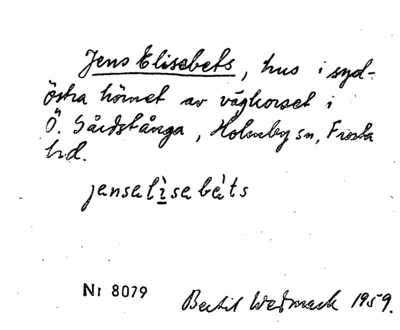 Jens Elisebets, hus i syd-
östra hörnet av vägkorset i
Ö. Gårdstånga, Holmby sn, Frosta
hd.
jensalìsabè́ts
Nr 8079
Bertil Wedmark 1959.